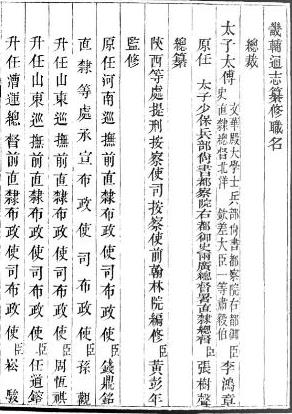 畿輔通志纂修職名
總裁
太子太傅文華殿大學士兵部尚書都察院右都御史直隸總督北洋欽差大臣一等肅毅伯臣李鴻章
原任太子少保兵部尚書都察院右都御史兩廣總督署直隸總督臣張樹聲
總纂
陝西等處提刑按察使司按察使前翰林院編修臣黃彭年
監修
原任河南巡撫前直隸布政使司布政使臣錢鼎銘
直隸等處承宣布政使司布政使臣孫觀
升任山東巡撫前直隸布政使司布政使臣周恆祺
升任山東巡撫前直隸布政使司布政使臣任道鎔
升任漕運總督前直隸布政使司布政使臣崧駿